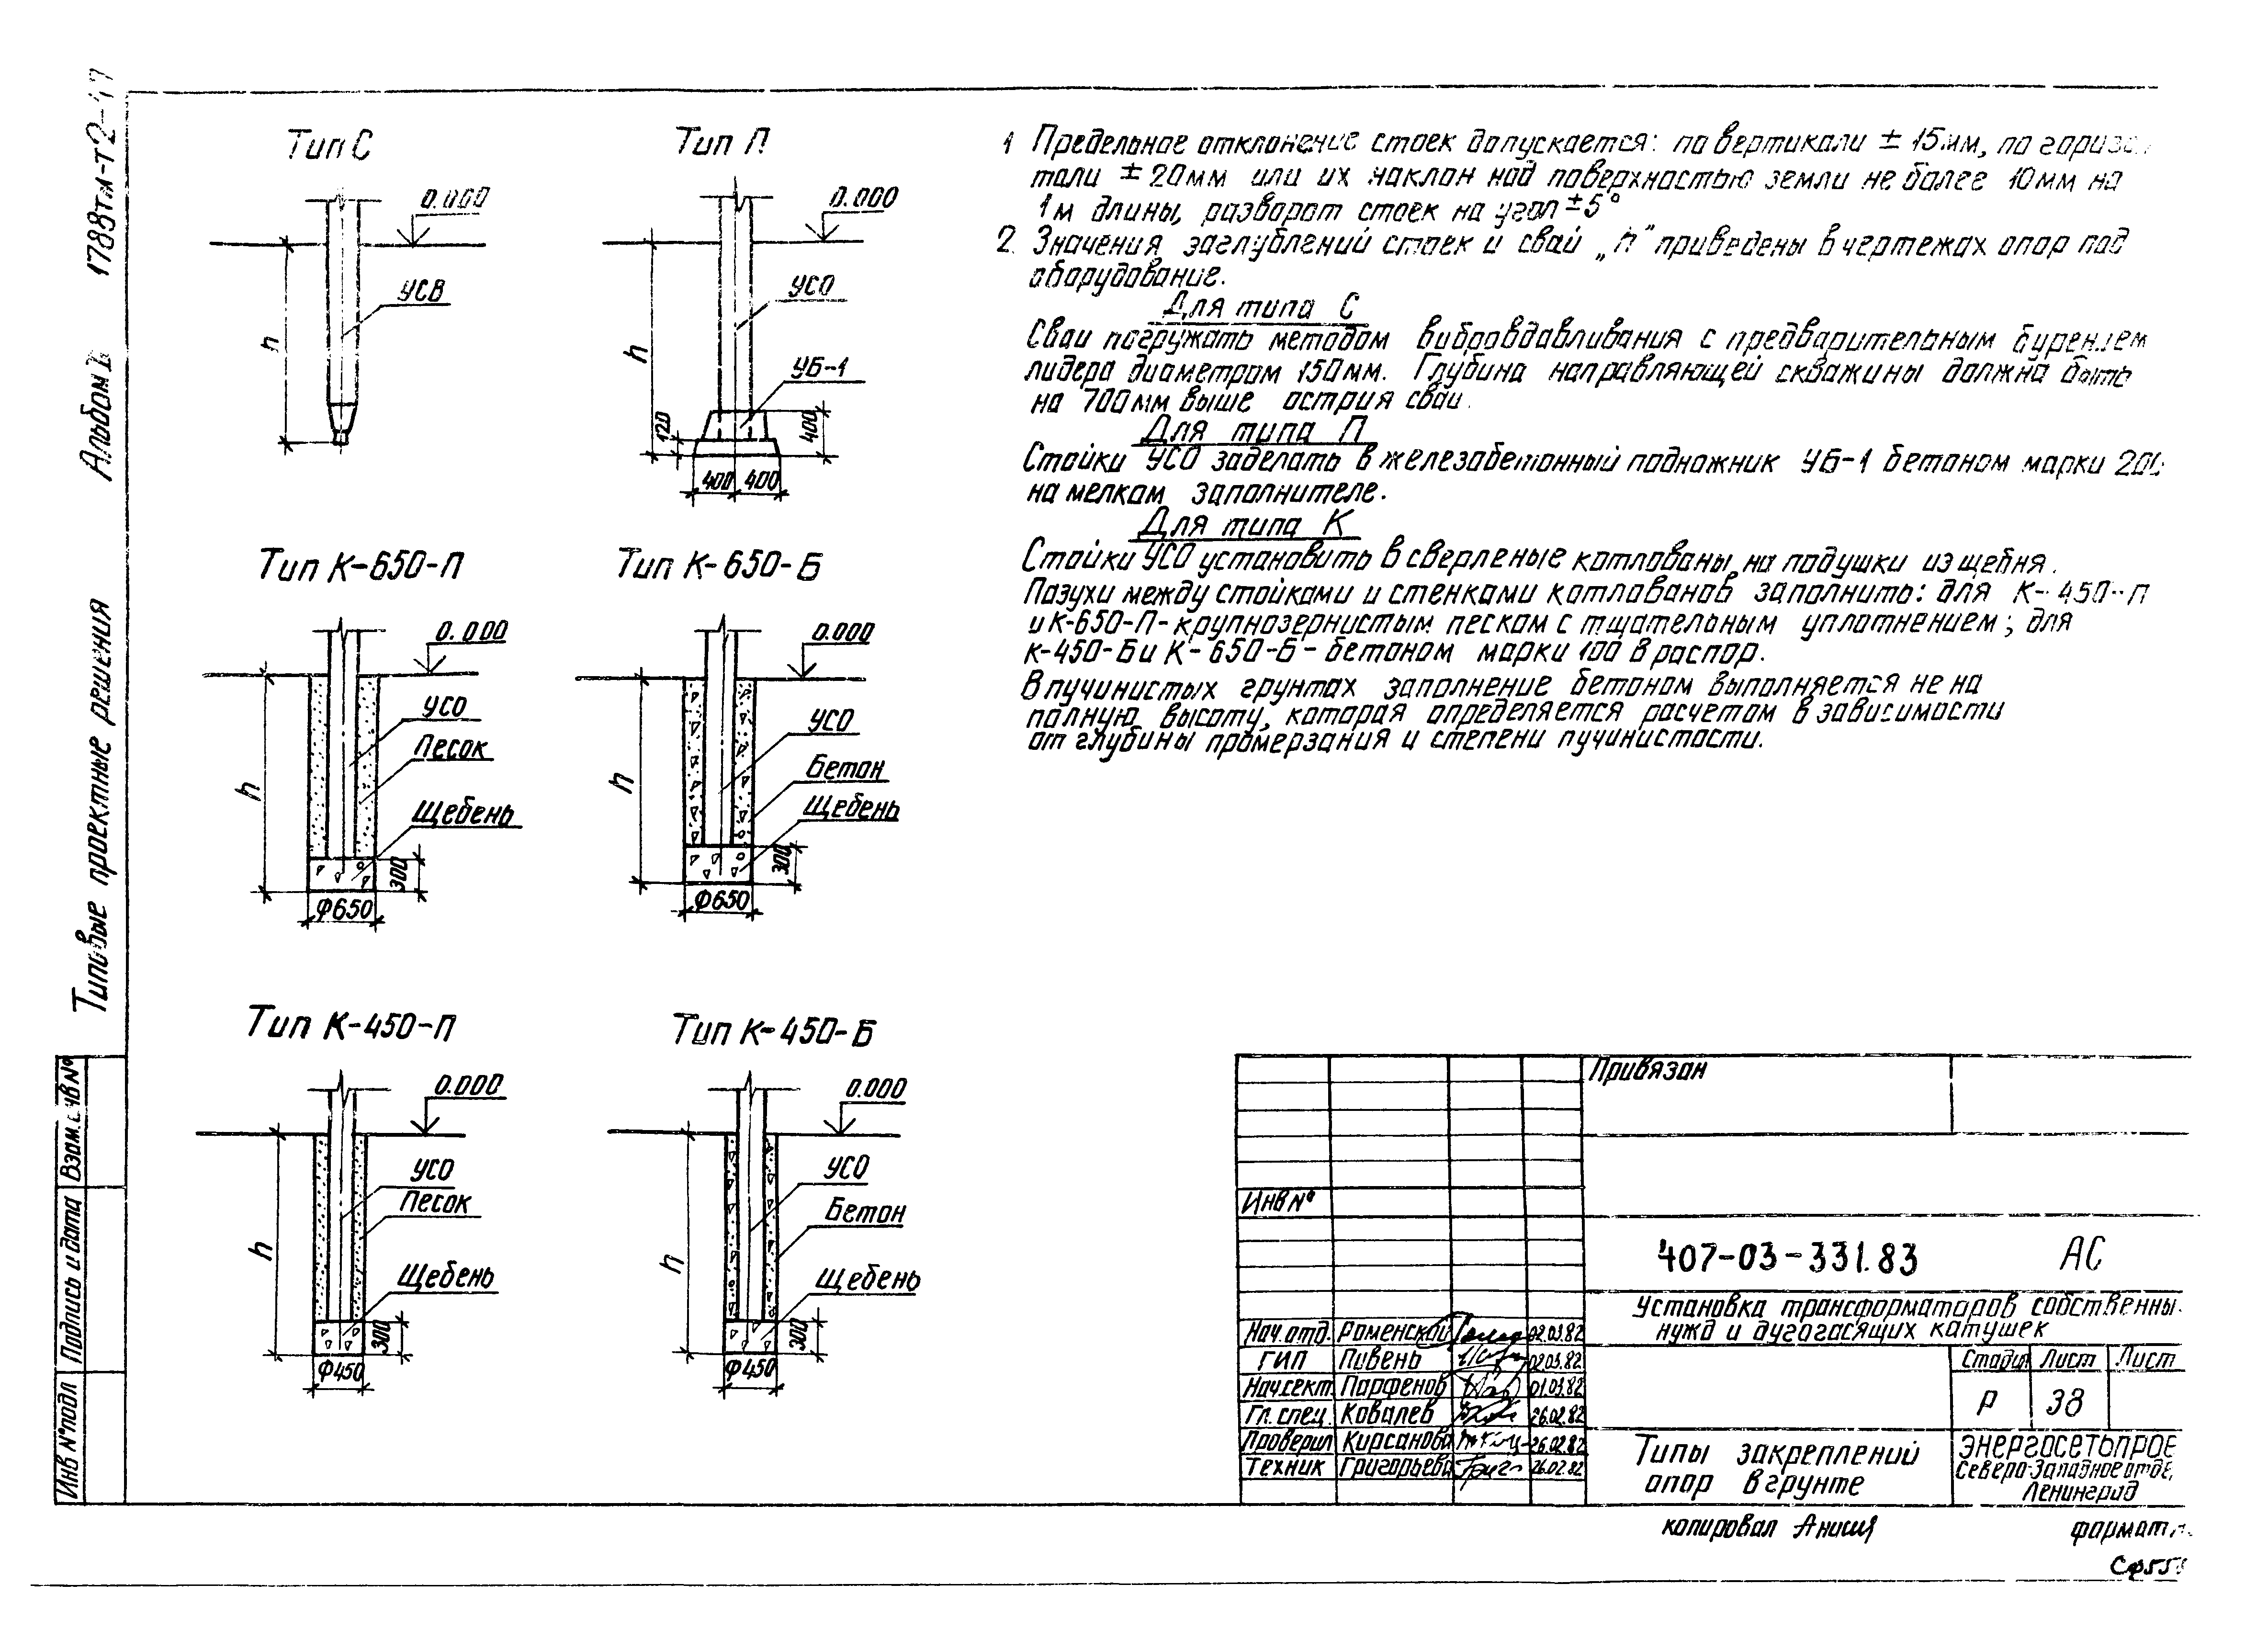 1788тм-т2-
Альбом I
Типовые проектные решения
Взам. инв №
Подпись и дата
Инв № подл
Тип С
0.000
УСВ
h
Тип П
0.000
УСО
h
УБ-1
120
400
400 400
Тип К-650-П
0.000
УСО
Песок
h
Щебень
300
Ф650
Тип К-650-Б
0.000
УСО
Бетон
h
Щебень
300
Ф650
Тип К-450-П
0.000
УСО
Песок
h
Щебень
300
Ф450
Тип К-450-Б
0.000
УСО
Бетон
h
Щебень
300
Ф450
1 Предельное отклонение стоек допускается: по вертикали ± 15мм, по горизон
тали ± 20мм или их наклон над поверхностью земли не более 10мм на
1м длины, разворот стоек на угол ±5°
2. Значения заглублений стоек и свай „h" приведены в чертежах опор под
оборудование.
Для типа С
Сваи погружать методом вибровдавливания с предварительным бурением
лидера диаметром 150мм. Глубина направляющей скважины должна быть
на 700мм выше острия сваи.
Для типа П
Стойки УСО заделать в железобетонный подножник УБ-1 бетоном марки 200
на мелком заполнителе.
Для типа К
Стойки УСО установить в сверленые котлованы на подушки из щебня.
Пазухи между стойками и стенками котлованов заполнить: для К-450-П
и К-650-П- крупнозернистым песком с тщательным уплотнением; для
К-450-Б и К-650-Б - бетоном марки 100 в распор.
В пучинистых грунтах заполнение бетоном выполняется не на
полную высоту, которая определяется расчетом в зависимости
от глубины промерзания и степени пучинистости.
Привязан
Инв №
407-03-331.83 АС
Установка трансформаторов собственны
нужд и дугогасящих катушек
Нач.отд. Роменский 02.03.82
ГИП Пивень 02.03.82
Нач.сект Парфенов 01.03.82
Гл.спец. Ковалев 26.02.82
Проверил Кирсанова 26.02.82
Техник Григорьева 26.02.82
Стадия Лист Лист
Р 38
Типы закреплений
опор в грунте
ЭНЕРГОСЕТЬПРОЕ
Северо-Западное отде
Ленинград
копировал Анисия
формат
Сф55